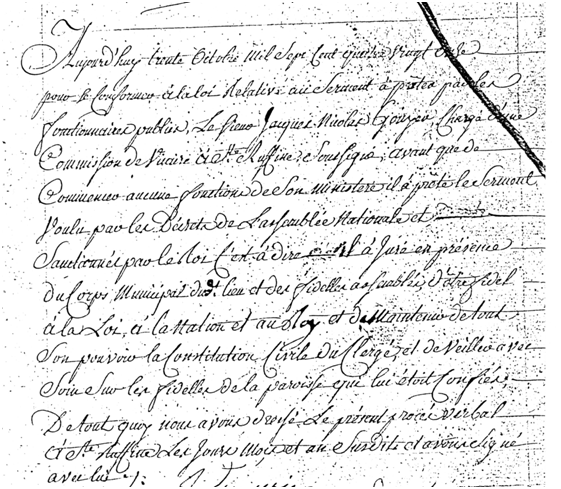 Aujourd'huy trente Octobre Mil Sept Cent quatre vingt onze
pour se Conformer à la loi Relative au Serment à preter par les
fonctionnaires publics, Le Sieur Jacques Nicolas Chargé d'une
Commission de Vicaire à Ste Ruffine, Soussigné, avant que de
Commencer aucune fonctions de Son Ministere il à prété le Serment
Voulu par les Decrets de L'assemblée Nationale et
Sanctionnés par le Roi C'est à dire à Juré en présence
du Corps Municipal dud. lieu et des fidelles assemblés, d'être fidel
à la Loi, à la Nation et au Roy et de Maintenir de tout
Son pouvoir la Constitution Civile du Clergé, et de Veiller avec
Soin Sur les fidelles de la paroisse qui lui étoit Confiés.
De tout quoy nous avons dressé Le présent procès verbal
à Ste Ruffine Les Jours Mois et an Susdits et avons signé
avec lui